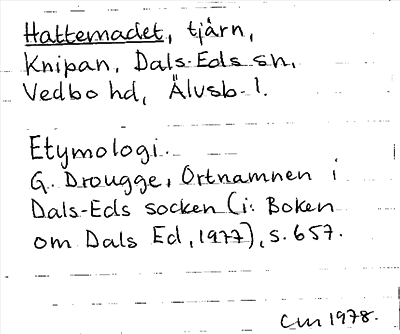 Hattemadet, tjärn,
Knipan, Dals-Eds sn,
Vedbo hd, Älvsb. l.
Etymologi.
G. Drougge, Ortnamnen i
Dals-Eds socken (i: Boken
om Dals Ed, 1977), s. 657.
CM 1978.